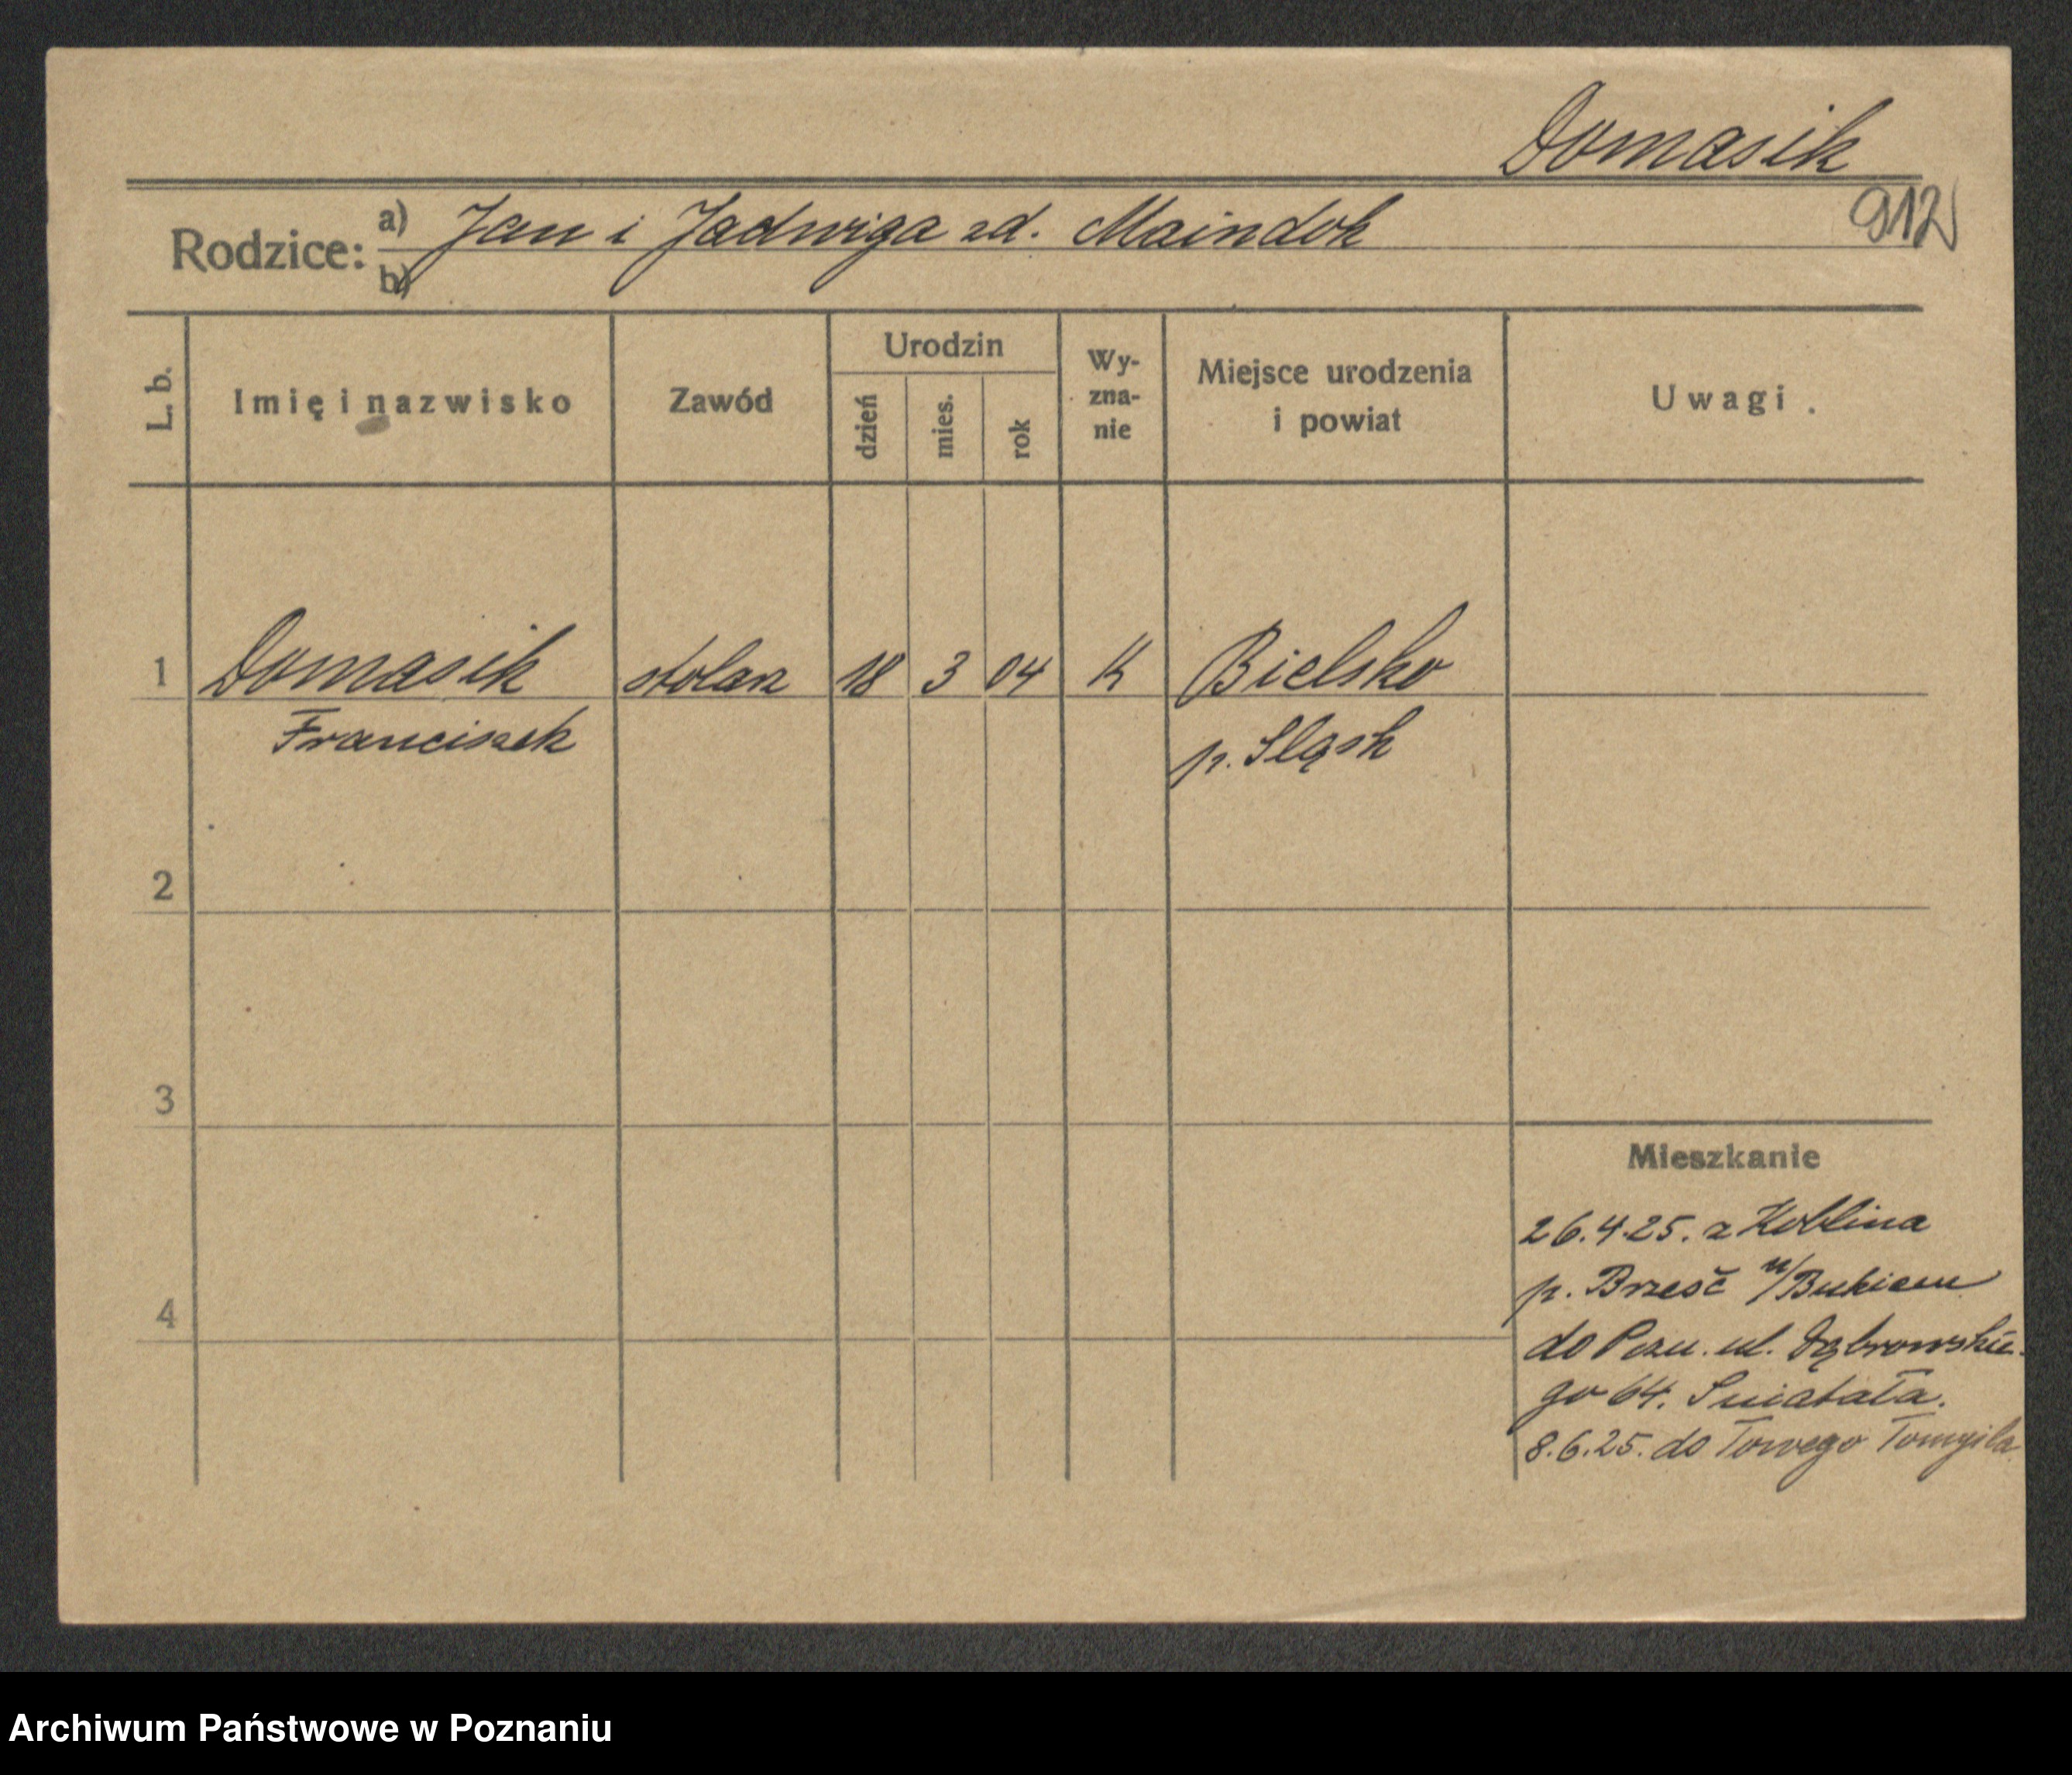 Domasik
912
Rodzice: a) Jan i Jadwiga zd. Maindok
b)
L. b. Imię i nazwisko Zawód Urodzin dzień mies. rok Wy-zna-nie Miejsce urodzenia i powiat Uwagi.
1 Domasik stolarz 18 3 04 K Bielsko
Franciszek p. Sląsk
2
3
Mieszkanie
26.4.25. z Koblina
p. Brześć n/Bukiem
4
do Pozn. ul. Dąbrowskie-
go 64.
8.6.25. do Towego Tomyśla
Archiwum Państwowe w Poznaniu